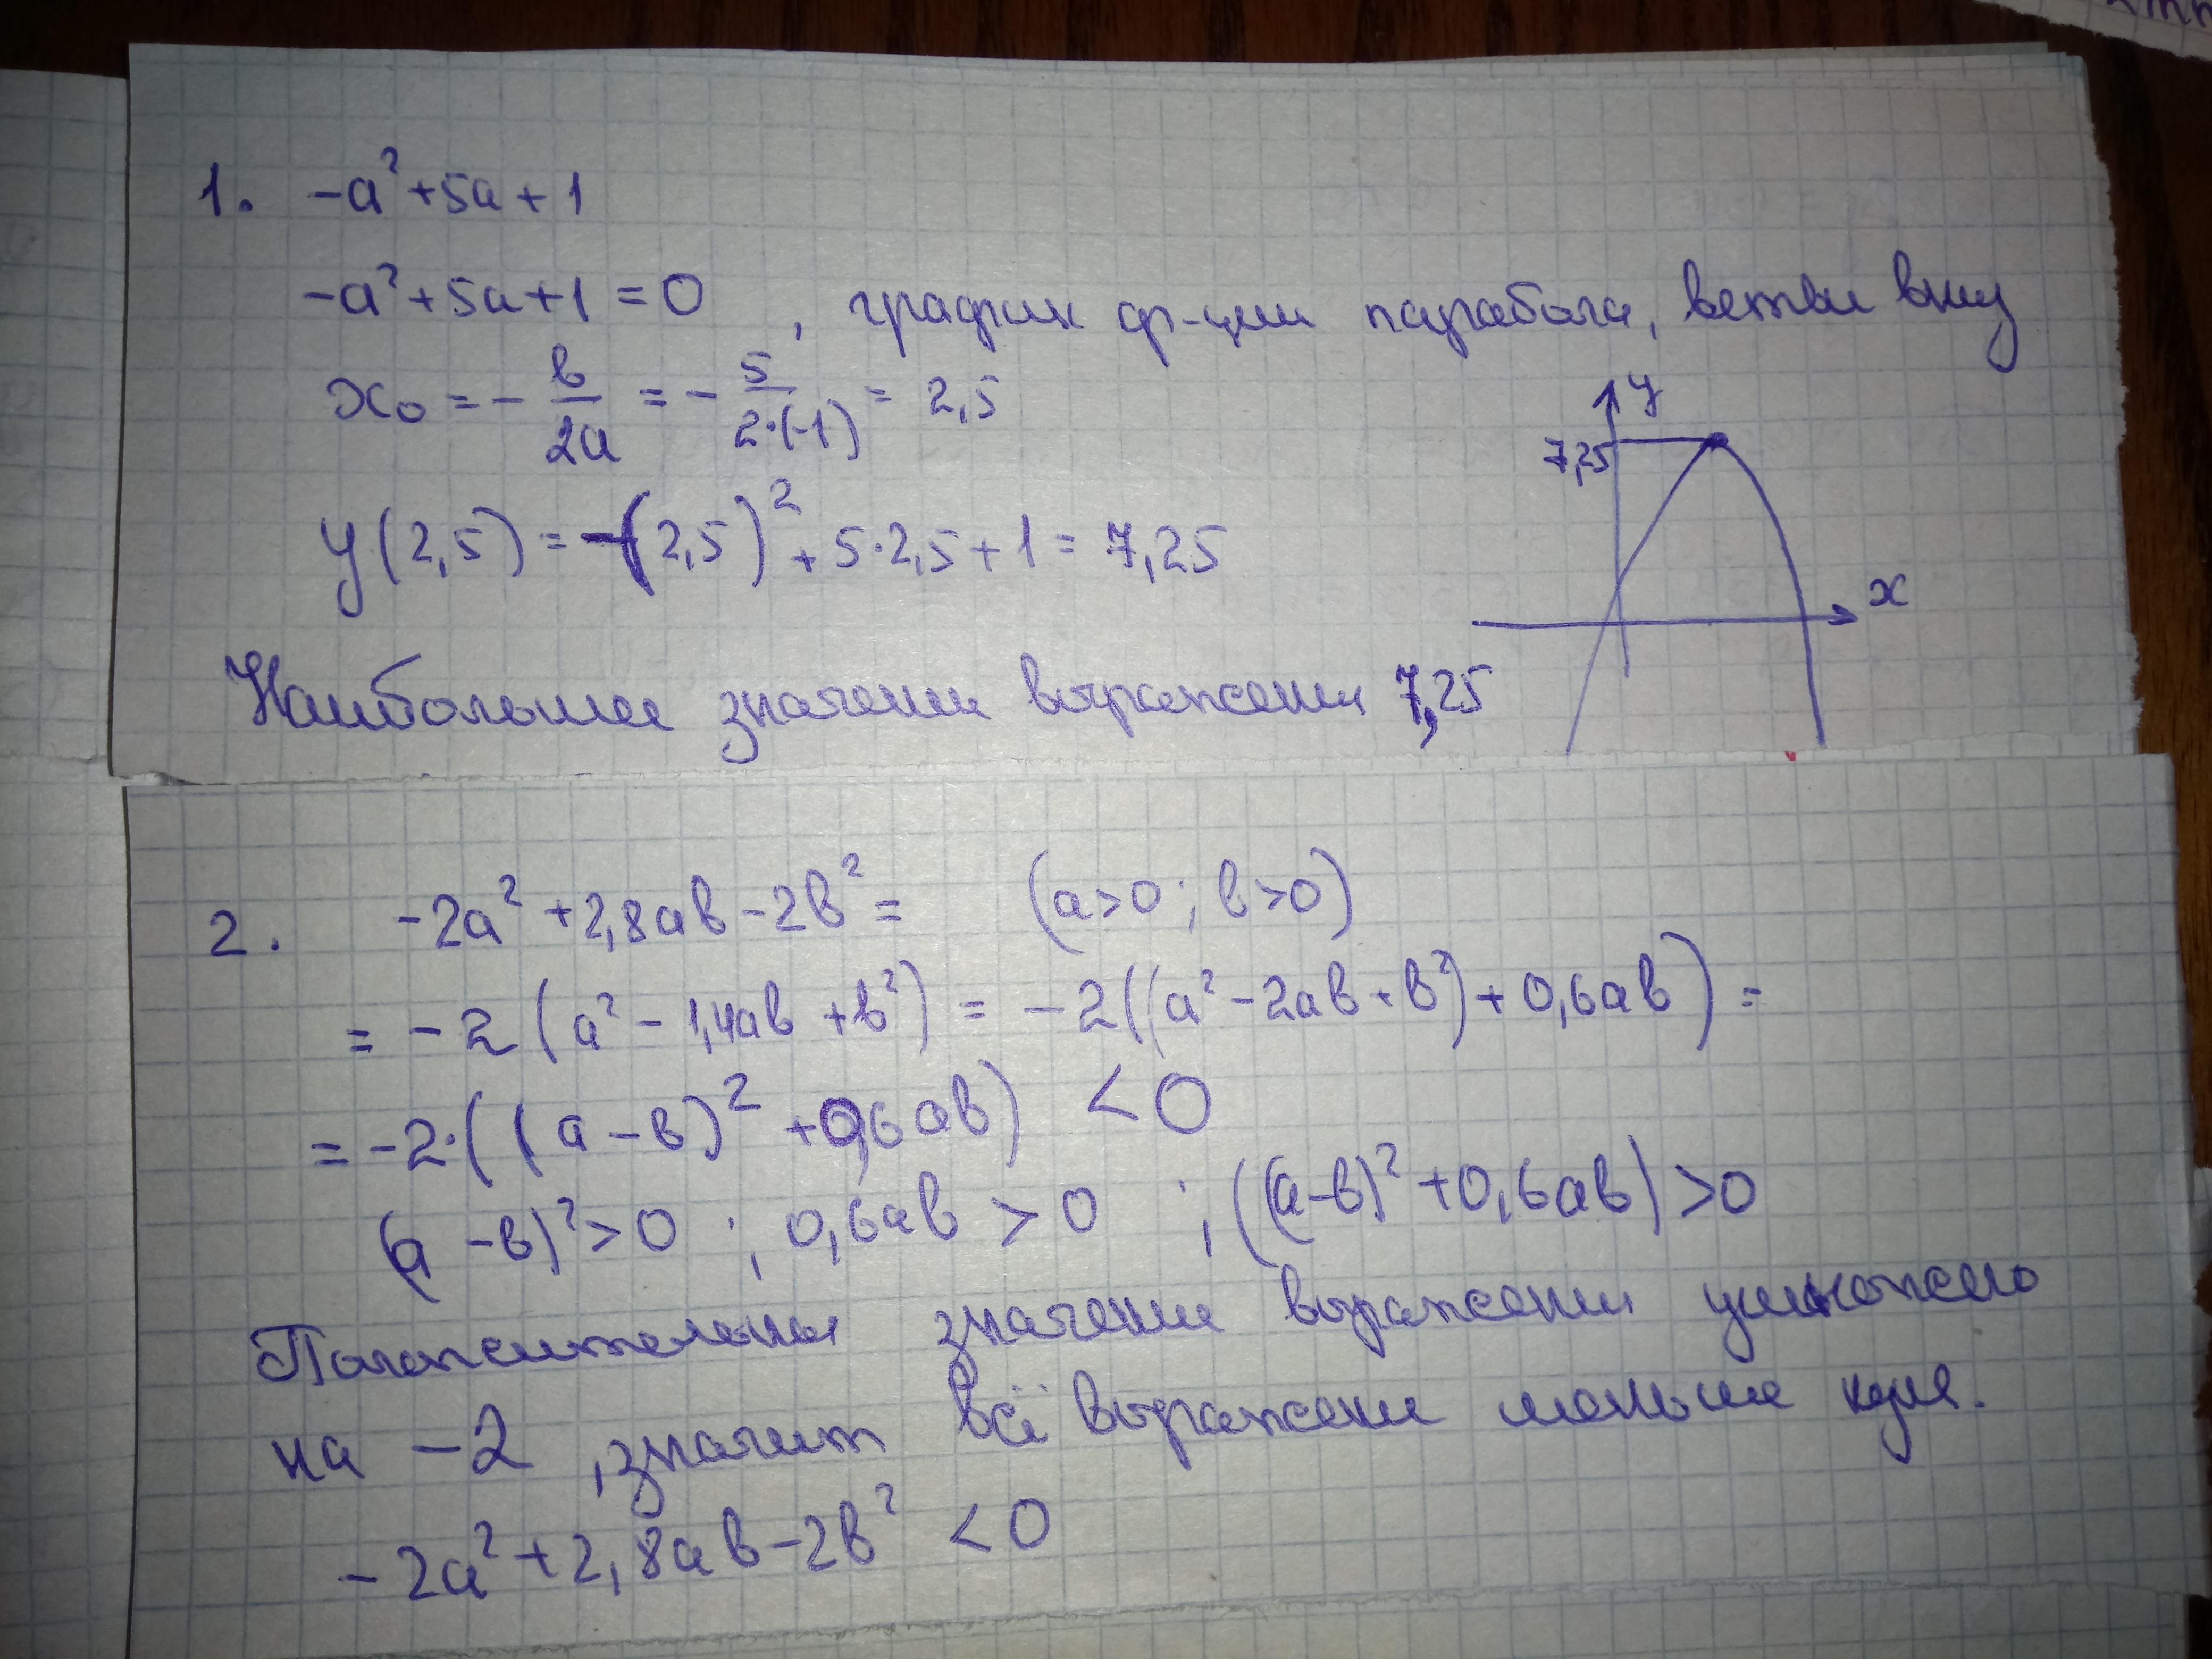 1. -a²+5a+1
-a²+5a+1=0 , график ф-ции парабола, ветви вниз
x₀ = - в/2a = - 5/2·(-1) = 2,5
y(2,5) = -(2,5)²+5·2,5+1 = 7,25
y
7,25
x
Наибольшее значение выражения 7,25
2. -2a²+2,8aв-2в² = (a>0; в>0)
= -2(a²-1,4aв+в²) = -2((a²-2aв+в²)+0,6aв) =
= -2·((a-в)²+0,6aв) <0
(a-в)²>0 ; 0,6aв>0 ; ((a-в)²+0,6aв)>0
Положительные значение выражения умножено
на -2, значит всё выражение меньше нуля.
-2a²+2,8aв-2в² <0